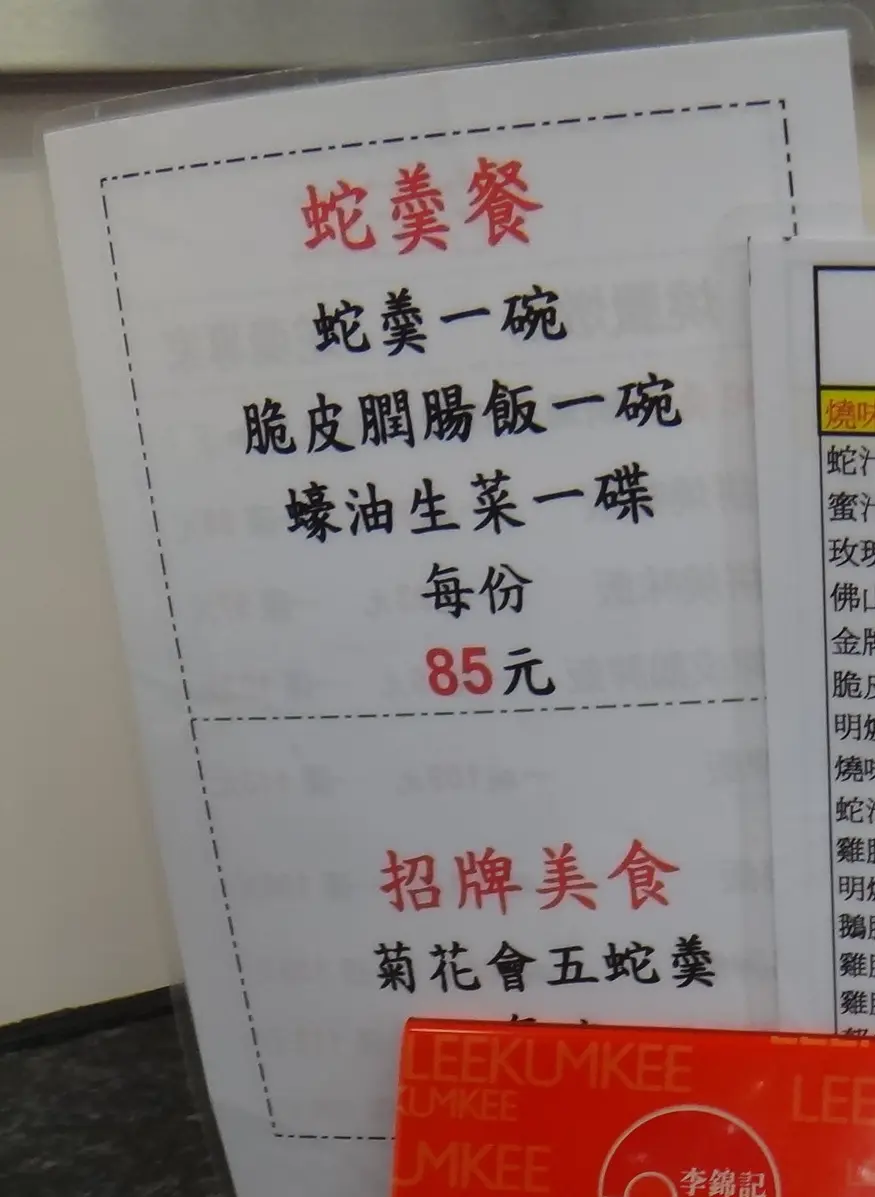 蛇羹餐
蛇羹一碗
脆皮膶腸飯一碗
蠔油生菜一碟
每份
85元
招牌美食
菊花會五蛇羹
燒味
蛇汁
蜜汁
玫瑰
佛山
金牌
脆皮
明爐
燒味
蛇
雞
明爐
鵝
雞
雞
LEEKUMKEE
KUMKEE
UMKEE
LEE
李錦記